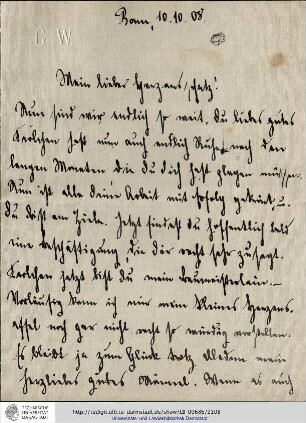 Bonn, 10.10.08
G W
Mein lieber Herzensschatz!
Nun sind wir endlich so weit. Du liebes gutes
Karlchen hast nun auch endlich Ruhe nach den
langen Monaten die du dich hast plagen müssen.
Nun ist alle Deine Arbeit mit Erfolg gekrönt, u.
du bist am Ziele. Jetzt findest du hoffentlich bald
eine Beschäftigung, die dir recht sehr zusagt.
Karlchen jetzt bist du mein Baumeisterlein.
Vorläufig kann ich mir mein kleines Herzens-
affel noch gar nicht recht so würdig vorstellen.
Es bleibt ja zum Glück trotz alledem mein
herzliebes gutes Männel. Wenn es auch
TECHNISCHE
UNIVERSITÄT
DARMSTADT
http://tudigit.ulb.tu-darmstadt.de/show/LB_00686/2108
Universitäts- und Landesbibliothek Darmstadt